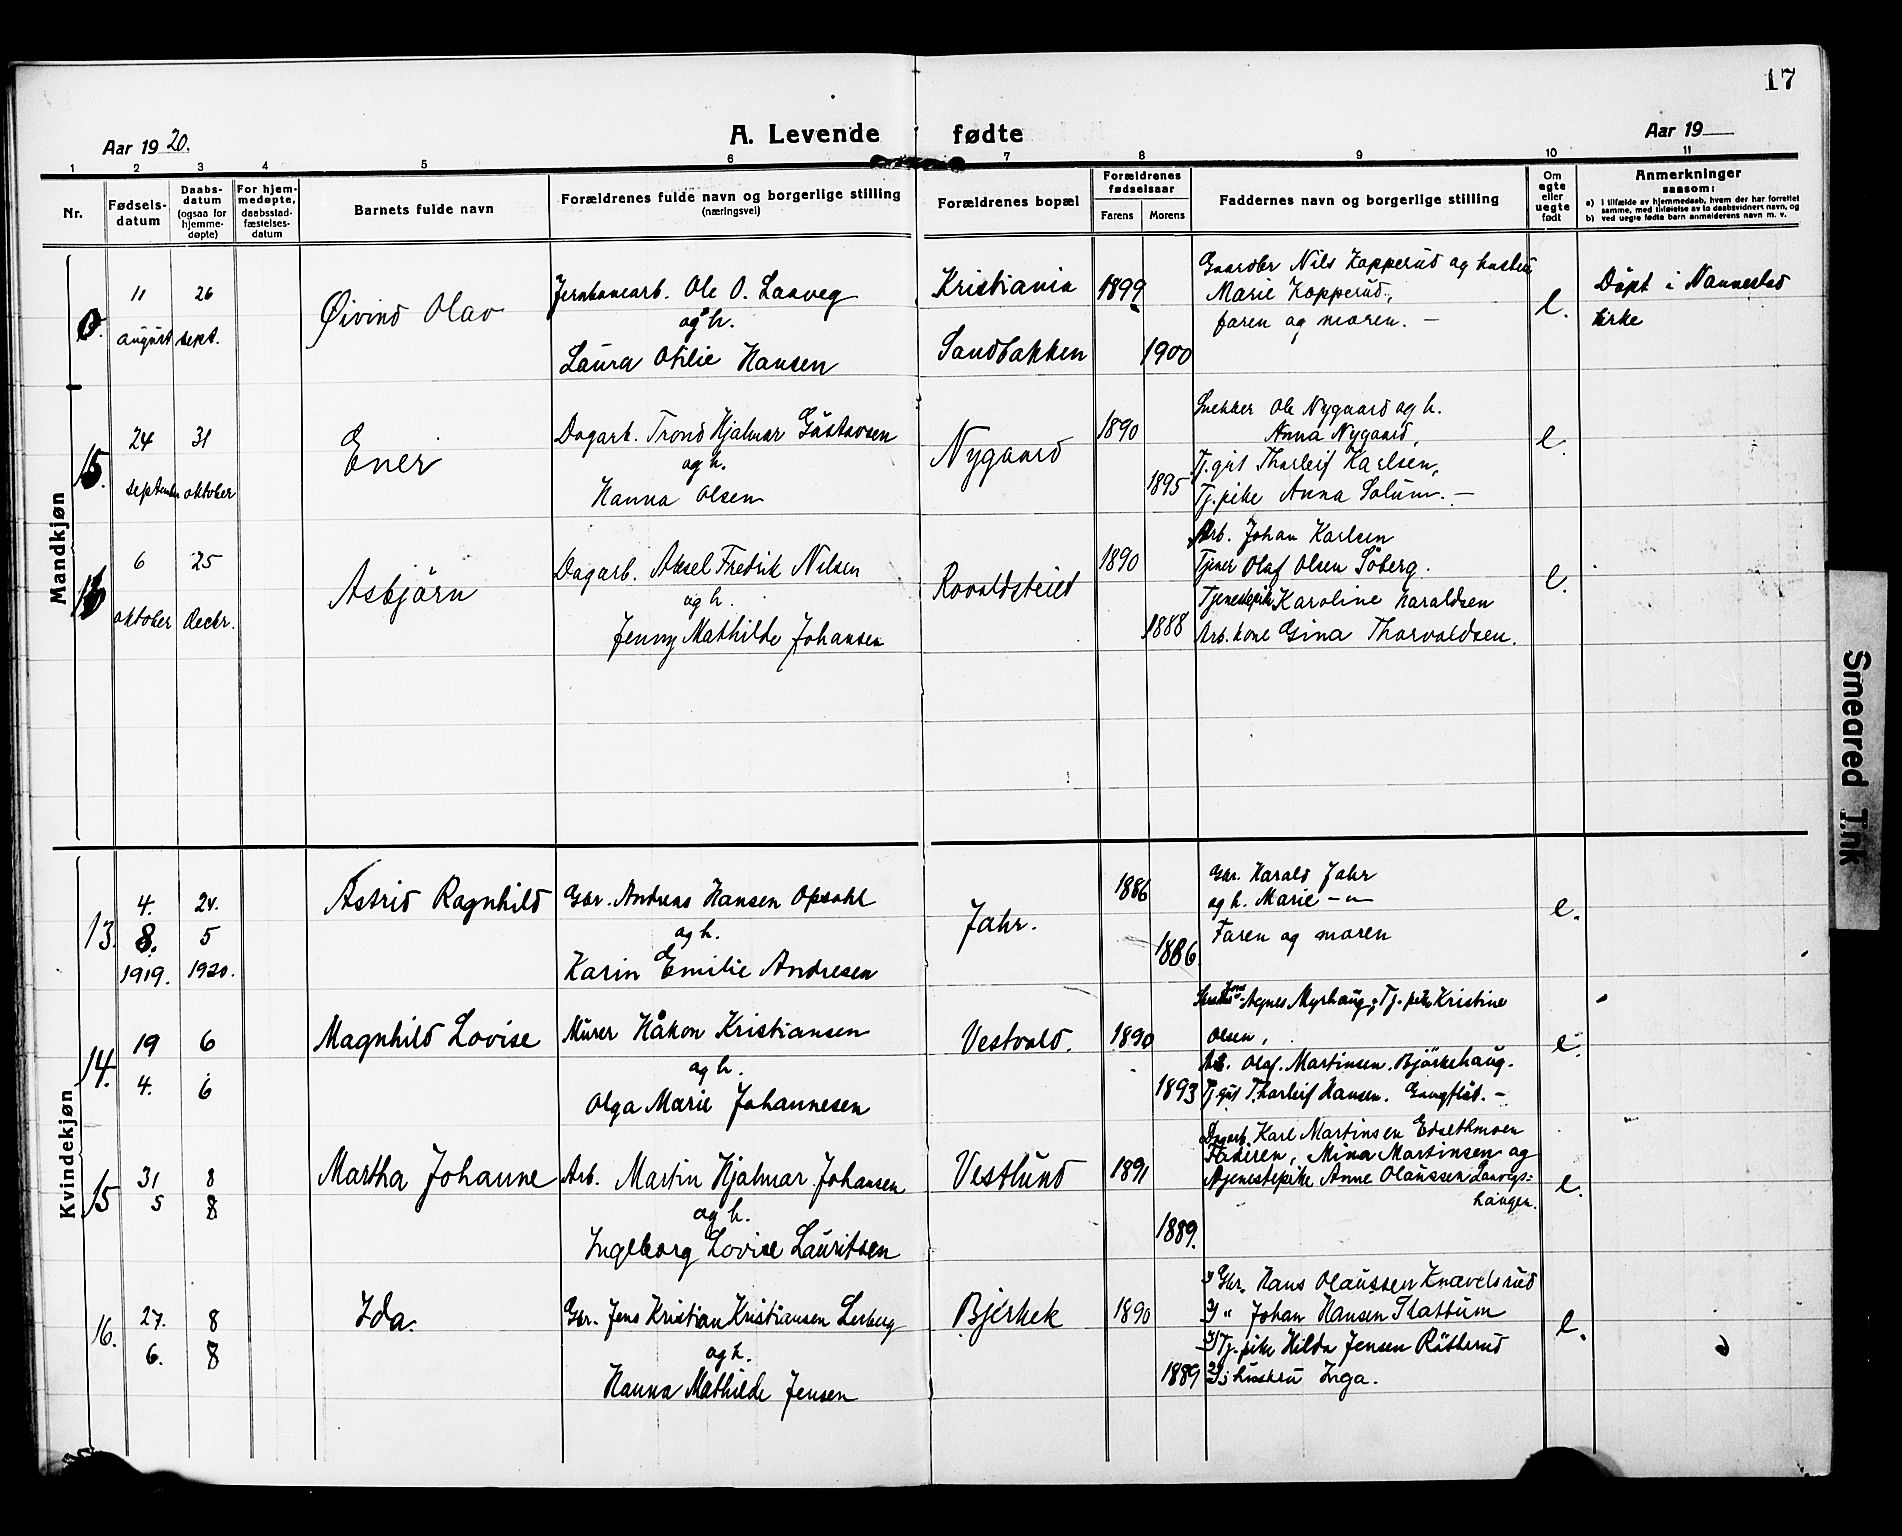 17
Aar 1920.
A. Levende fødte
Aar 19
1 2 3 4 5 6 7 8 9 10 11
Nr.
Fødsels-
datum
Daabs-
datum
(ogsaa for
hjemme-
døpte)
For hjem-
medøpte,
daabsstad-
fæstelses-
datum
Barnets fulde navn
Forældrenes fulde navn og borgerlige stilling
(næringsvei)
Forældrenes bopæl
Forældrenes
fødselsaar
Farens
Morens
Faddernes navn og borgerlige stilling
Om
ægte
eller
uegte
født
Anmerkninger
saasom:
a) i tilfælde av hjemmedaab, hvem der har forrettet
samme, med tilføielse av to daabsvidners navn, og
b) ved uegte fødte barn anmelderens navn m. v.
Mandkjøn
11 august
26 sept.
Øivind Olav
Jernbanearb. Ole O. Laaveg
og h.
Laura Otilie Hansen
Kristiania
Sandbakken
1899
1900
Gaardbr Nils Kopperud og hustru
Marie Kopperud,
faren og moren. —
e.
Döpt i Nannestad
kirke
15.
24 september
31 oktober
Ener
Dagarb. Trond Hjalmar Gustavsen
og h.
Hanna Olsen
Nygaard
1890
1895
Snekker Ole Nygaard og h.
Anna Nygaard,
Tj.gut Thorleif Karlsen,
Tj.pike Anna Solum. —
e.
16
6 oktober
25 decbr.
Asbjörn
Dagarb. Aksel Fredrik Nilsen
og h.
Jenny Mathilde Johansen
Rovoldseiet
1890
1888
Arb. Johan Karlsen
Tjener Olaf Olsen Söberg.
Tjenestepike Karoline Haraldsen
Arb.kone Gina Thorvaldsen.
e.
Kvindekjøn
13.
4. 8. 1919.
24. 5 1920.
Astrid Ragnhild
Gbr. Andreas Hansen Opsahl
og h.
Karin Emilie Andresen
Jahr.
1886
1886
Gbr. Harald Jahr
og h. Marie — " —
Faren og moren
e.
14.
19 4.
6 6
Magnhild Lovise
Murer Håkon Kristiansen
og h.
Olga Marie Johannesen
Vestvold.
1890
1893
Agnes Myrhaug, Tj. pike Kristine
Olsen,
Arb. Olaf Martinsen Björkehaug.
Tj.gut Thorleif Hansen. —
e.
15
31 5
8 8
Martha Johanne
Arb. Martin Hjalmar Johansen
og h.
Ingeborg Lovise Lauritsen
Vestlund
1891
1889.
Dagarb. Karl Martinsen
Mina Martinsen og
tjenestepike Anne Olaussen Laavegs-
haugen.
e.
16.
27. 6.
8 8
Ida.
Gbr. Jens Kristian Kristiansen Lerberg
og h.
Hanna Mathilde Jensen
Bjerkek
1890
1889
1) Gbr. Hans Olaussen Knavelsrud
2) " Johan Hansen Slattum
3) Tj. pike Hilda Jensen Rötterud
2)s hustru Inga.
e.
Smeared Ink